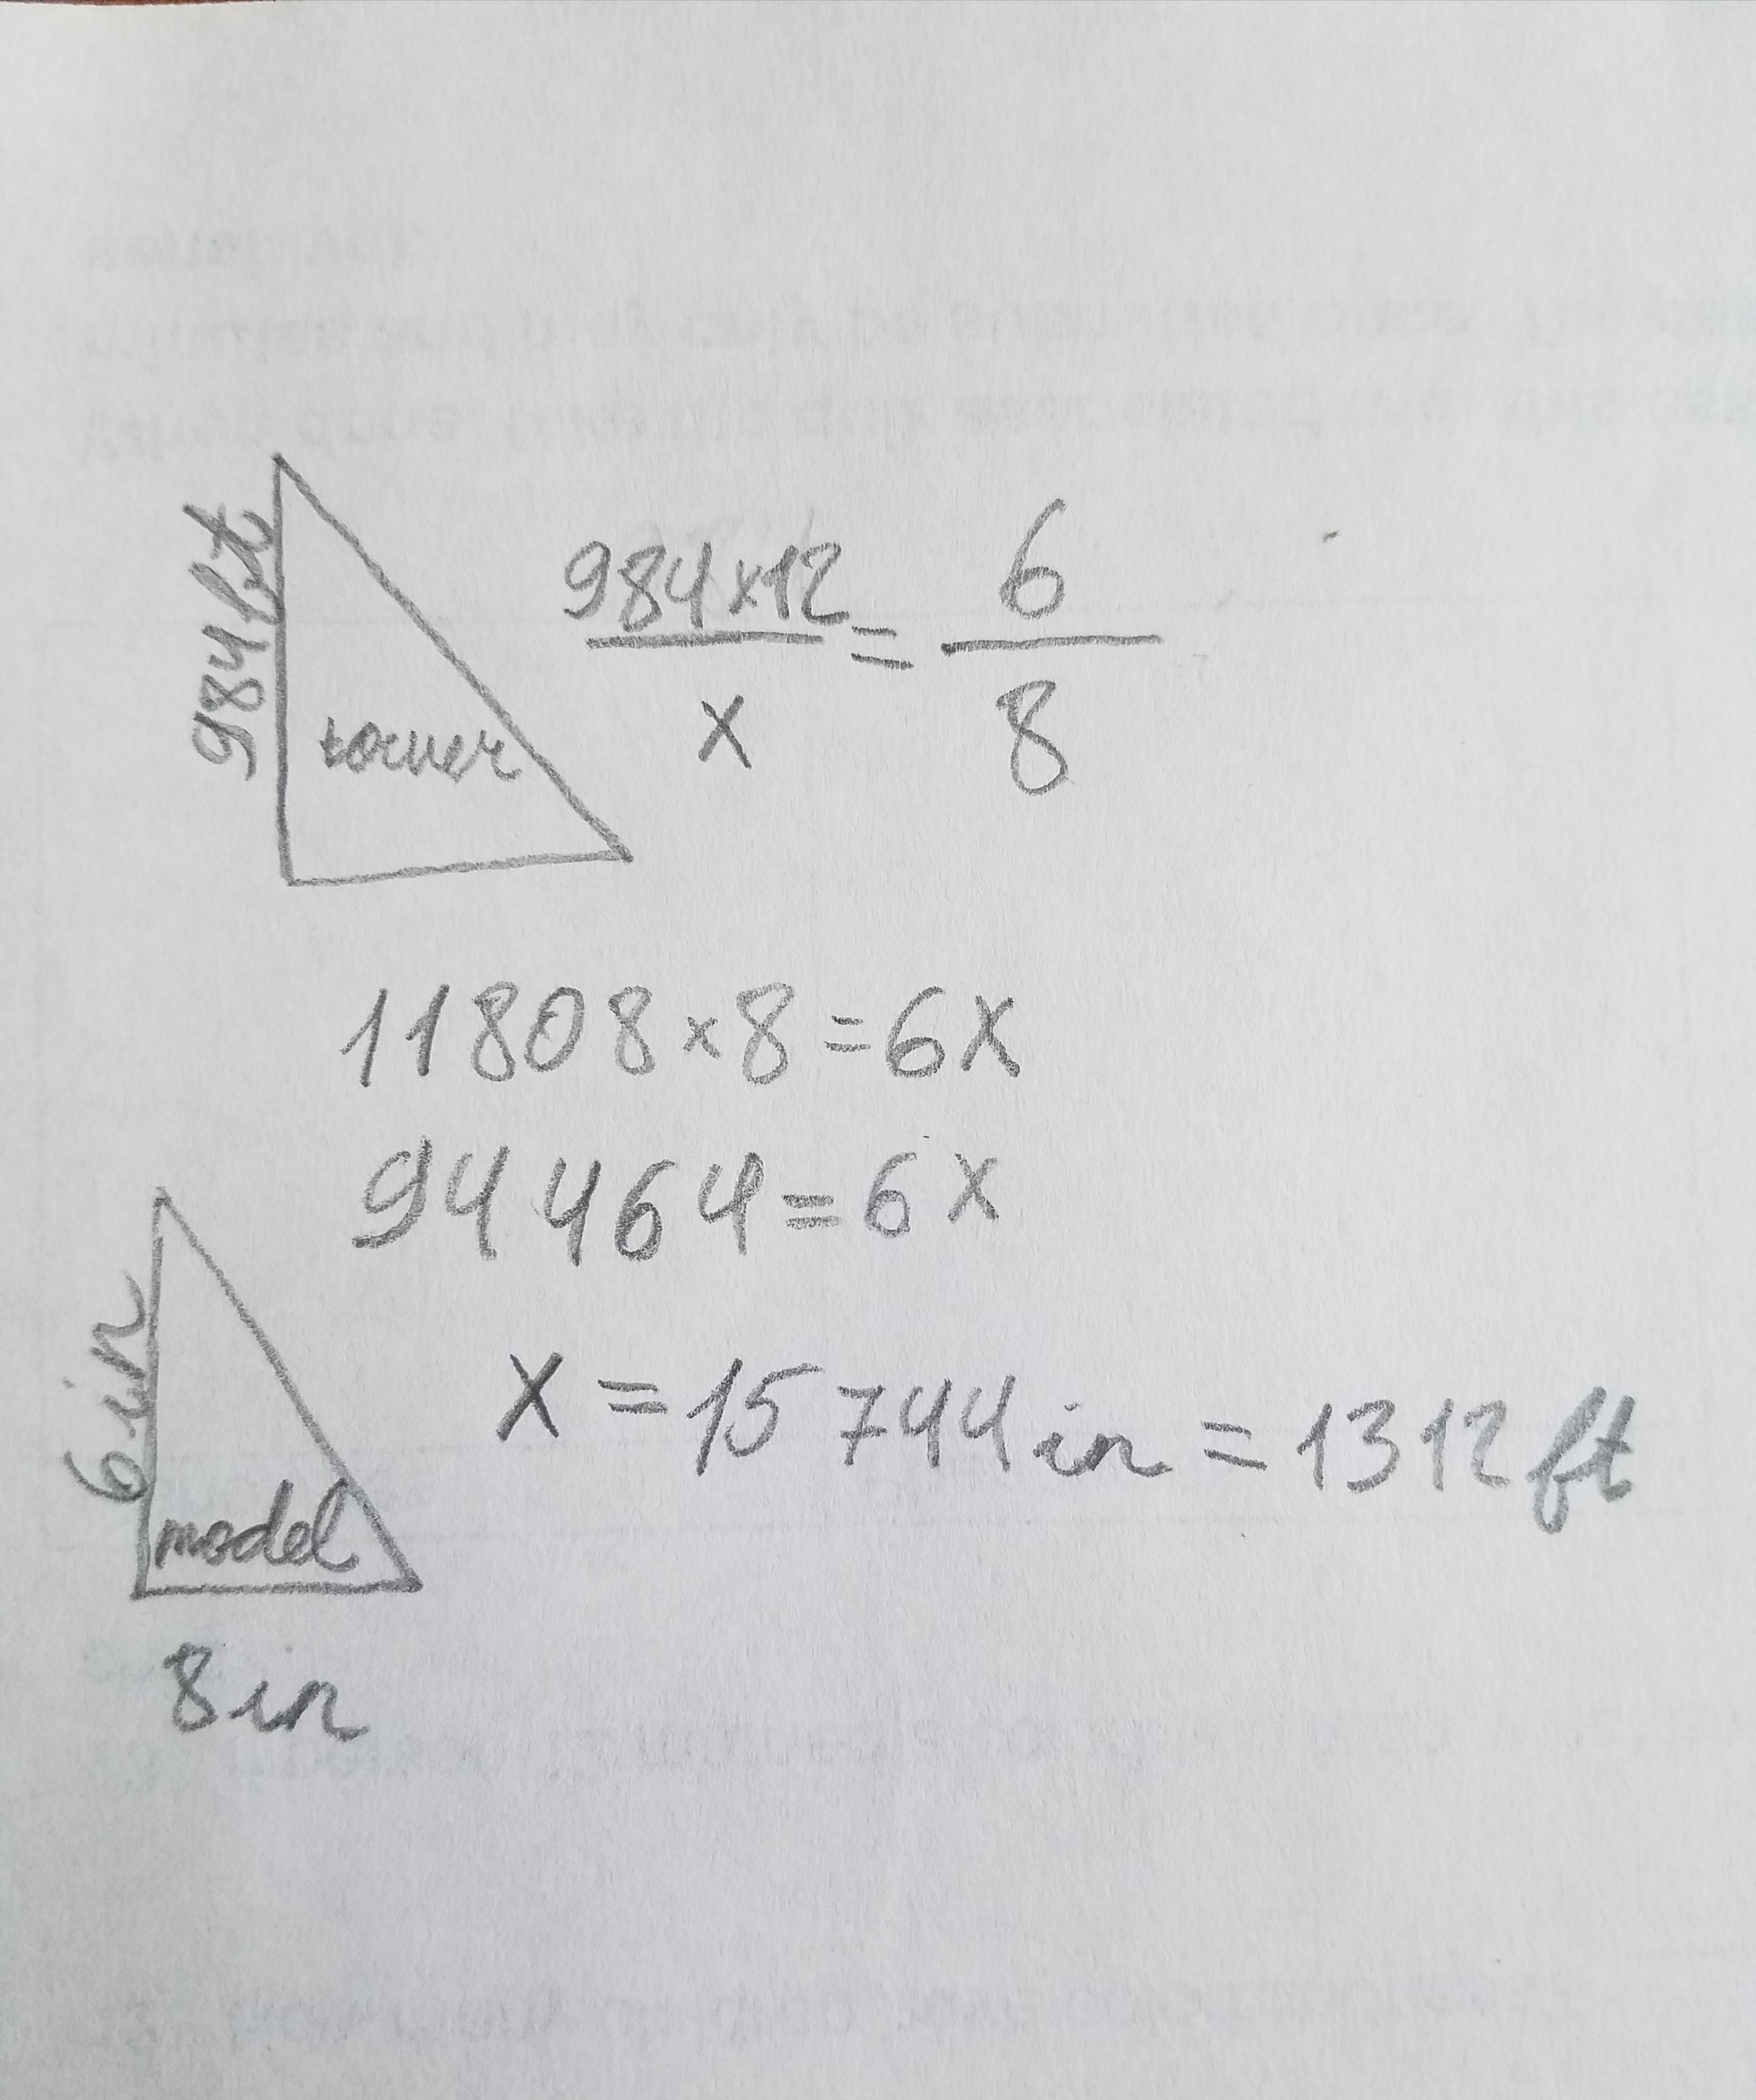 984 ft
tower
984×12/x = 6/8
11808×8=6x
94464=6x
x = 15744 in = 1312 ft
6 in
model
8 in